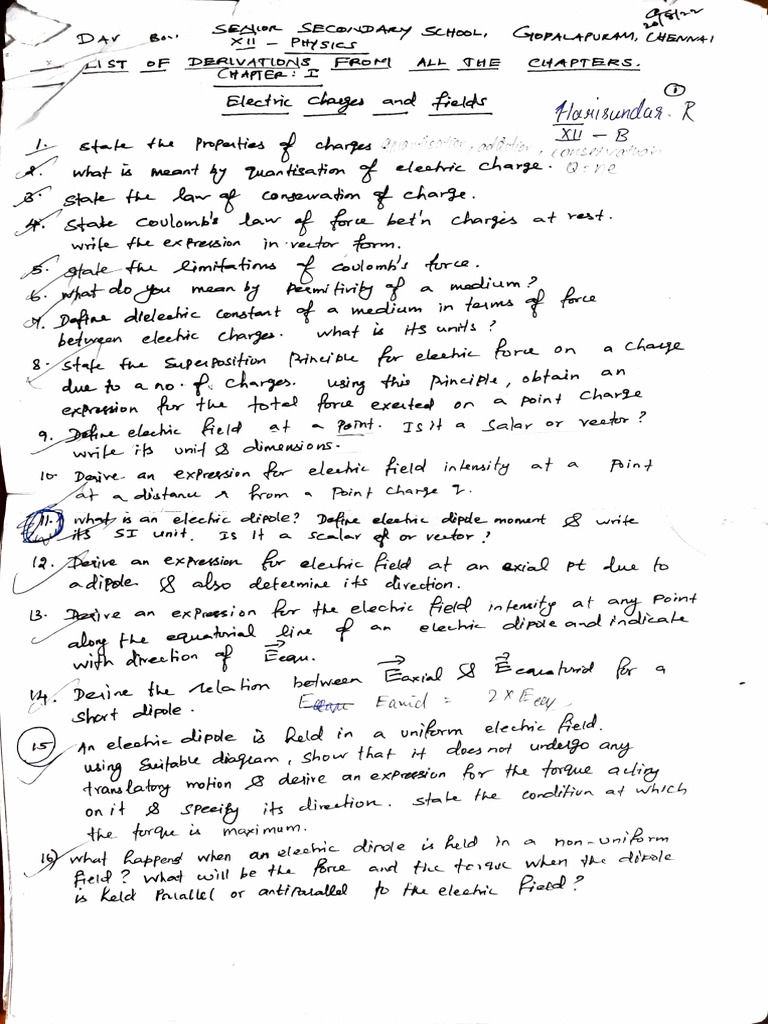 20/8/22
DAV Boys SENIOR SECONDARY SCHOOL, GOPALAPURAM, CHENNAI
XII - PHYSICS
LIST OF DERIVATIONS FROM ALL THE CHAPTERS.
CHAPTER : I
①
Electric Charges and fields
Harisundar. R
XII - B
1. State the Properties of charges Quantisation, addition, conservation
2. What is meant by quantisation of electric charge. Q = ne
3. State the law of conservation of charge.
4. State Coulomb's law of force bet'n charges at rest.
write the expression in vector form.
5. State the limitations of coulomb's force.
6. What do you mean by permitivity of a medium?
7. Define dielectric constant of a medium in terms of force
between electric charges. What is its units?
8. State the Superposition Principle for electric force on a charge
due to a no. of charges. Using this Principle, obtain an
expression for the total force exerted on a point charge
9. Define electric field at a point. Is it a Salar or vector?
write its unit & dimensions.
10. Derive an expression for electric field intensity at a point
at a distance r from a point charge q.
11. What is an electric dipole? Define electric dipole moment & write
its SI unit. Is it a scalar or vector?
12. Derive an expression for electric field at an axial pt due to
a dipole & also determine its direction.
13. Derive an expression for the electric field intensity at any point
along the equatorial line of an electric dipole and indicate
with direction of E⃗equ.
14. Derive the relation between E⃗axial & E⃗equatorial for a
short dipole. Eaxial = 2 x Eeq
15. An electric dipole is held in a uniform electric field.
using Suitable diagram, show that it does not undergo any
translatory motion & derive an expression for the torque acting
on it & specify its direction. State the condition at which
the torque is maximum.
16) What happens when an electric dipole is held in a non-uniform
field? What will be the force and the torque when the dipole
is held Parallel or antiparallel to the electric field?